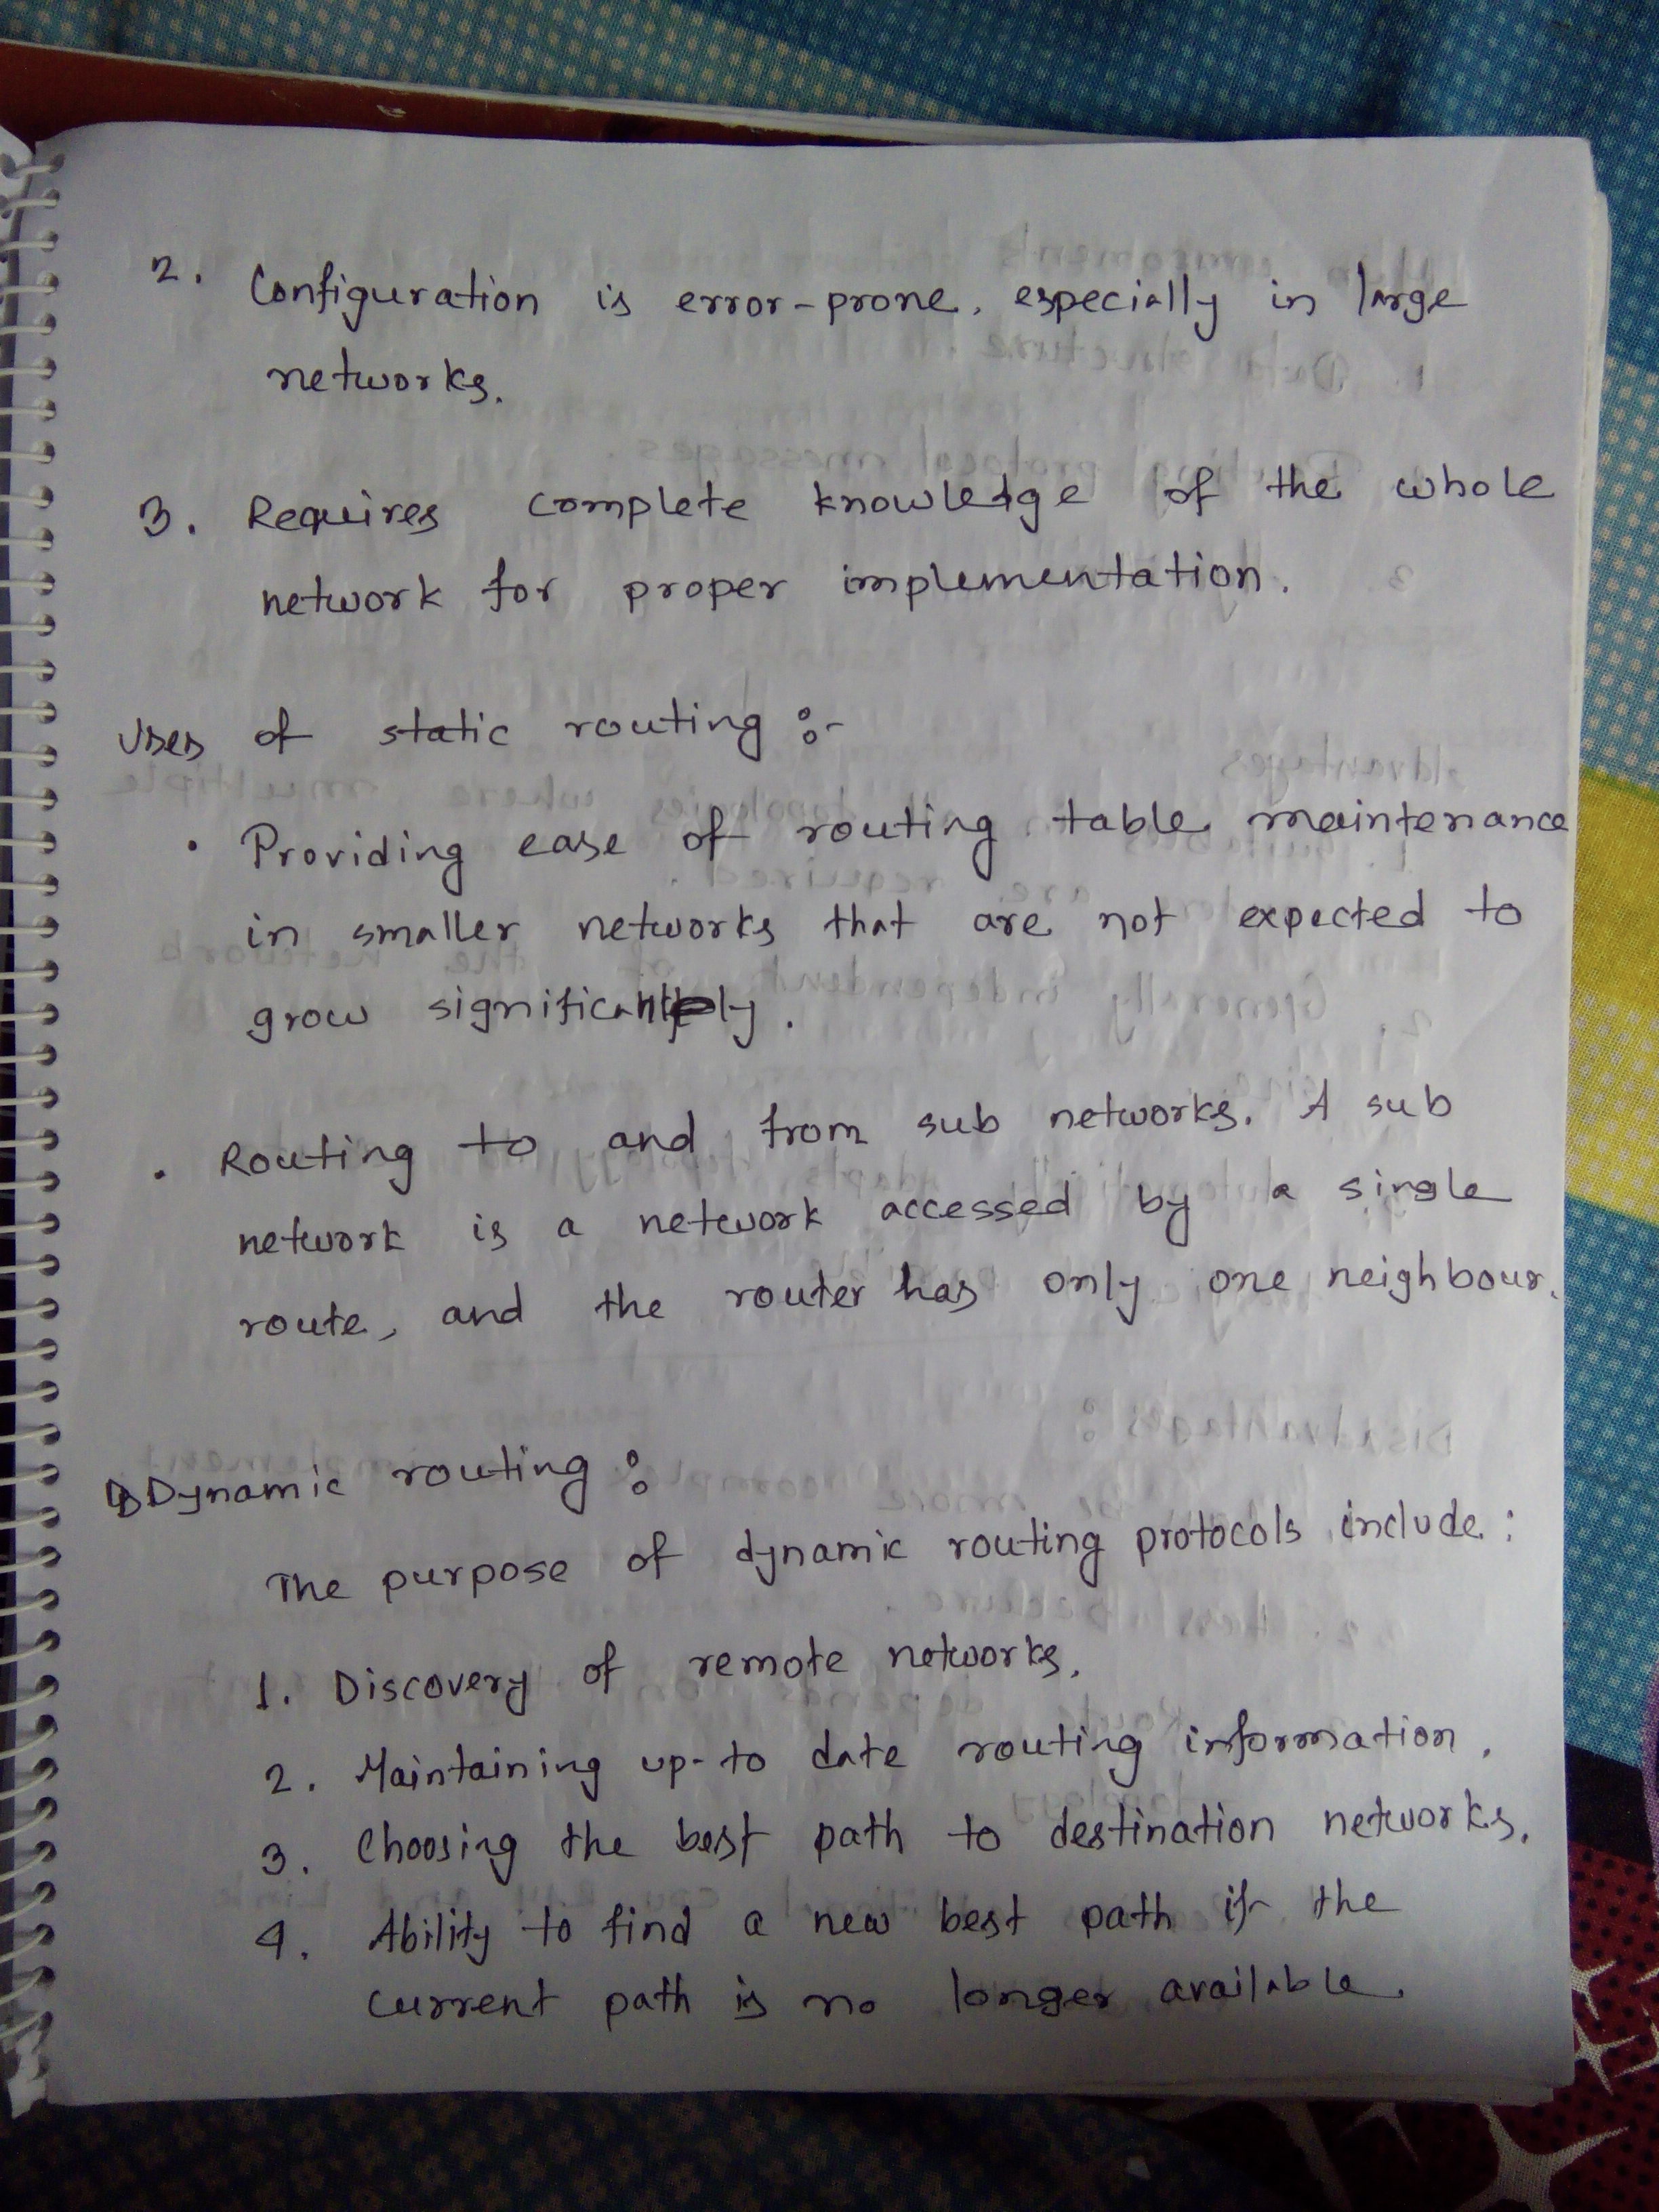 2. Configuration is error-prone, especially in large
networks.
3. Requires complete knowledge of the whole
network for proper implementation.
Uses of static routing :-
• Providing ease of routing table maintenance
in smaller networks that are not expected to
grow significantly.
• Routing to and from sub networks. A sub
network is a network accessed by a single
route, and the router has only one neighbour.
Dynamic routing :
The purpose of dynamic routing protocols include :
1. Discovery of remote networks.
2. Maintaining up-to date routing information.
3. Choosing the best path to destination networks.
4. Ability to find a new best path if the
current path is no longer available.